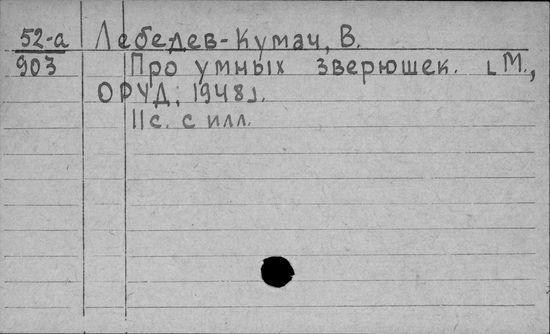 52-а Лебедев-Кумач, В.
903 Про умных зверюшек. [М.,
ОРУД, 1948].
11с. с илл.